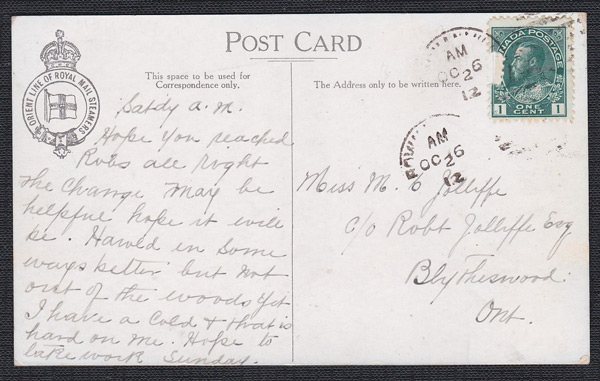 POST CARD
ORIENT LINE OF ROYAL MAIL STEAMERS
This space to be used for
Correspondence only.
The Address only to be written here.
CANADA POSTAGE
1 ONE CENT 1
AM
OC 26
12
AM
OC 26
12
Satdy a.m.
Hope you reached
Robs all right
The change may be
helpful hope it will
be. Harold in some
ways better but not
out of the woods yet
I have a cold & that is
hard on me. Hope to
take work Sunday.
Miss M. E Jolliffe
c/o Robt Jolliffe Esq
Blytheswood
Ont.